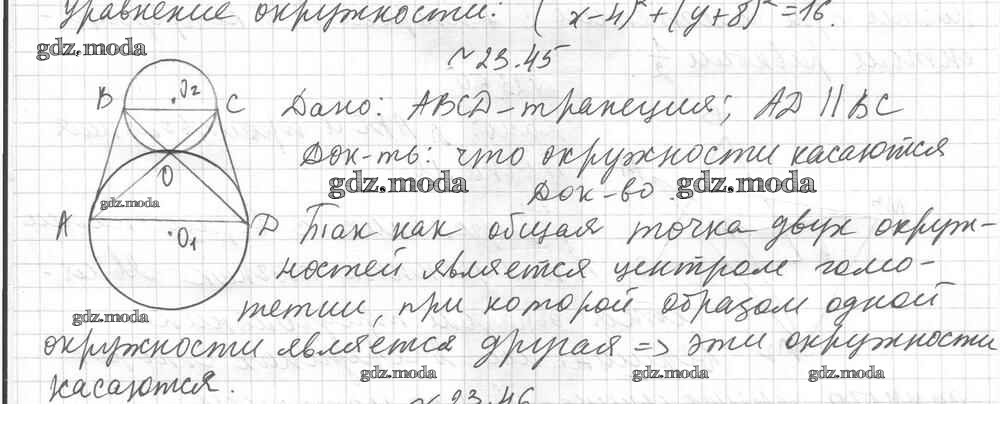 Уравнение окружности: (x-4)² + (y+8)² = 16.
gdz.moda
№23.45
B O₂ C Дано: ABCD-трапеция; AD || BC
Док-ть: что окружности касаются
O gdz.moda Док-во. gdz.moda
gdz.moda
A D Так как общая точка двух окруж-
O₁ ностей является центром гомо-
gdz.moda тетии, при которой образом одной
окружности является другая => эти окружности
gdz.moda gdz.moda gdz.moda
касаются.
№23.46